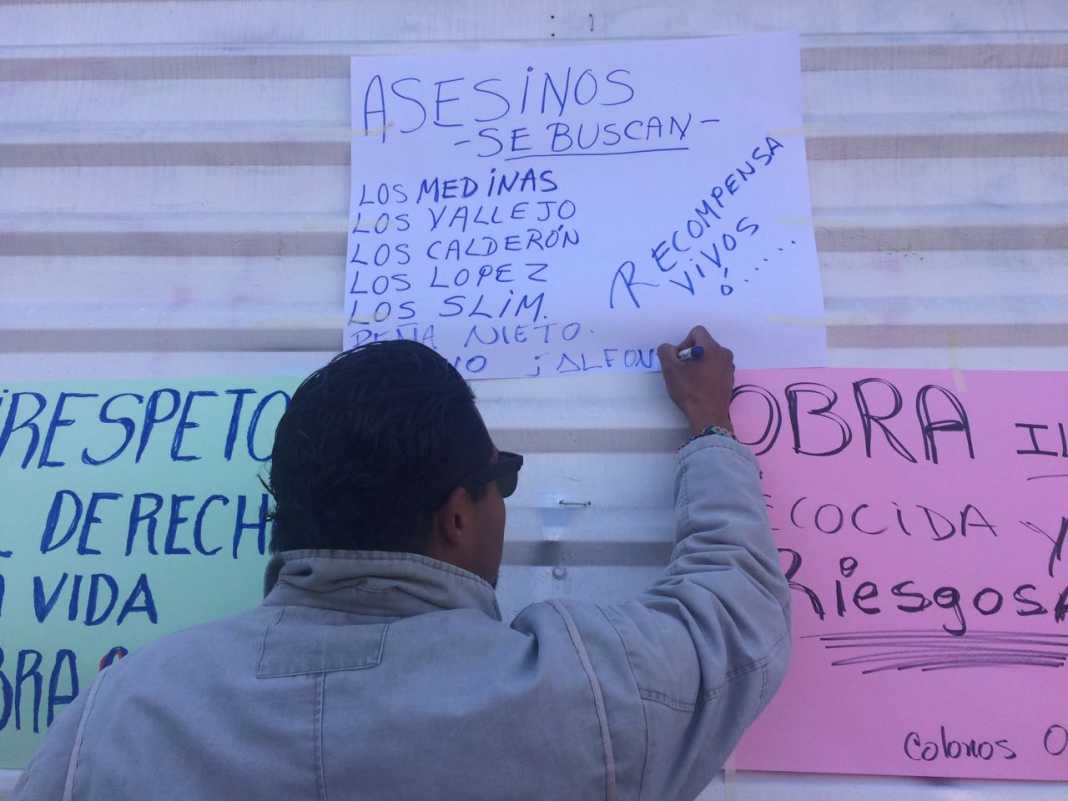 ASESiNOS
-SE BUSCAN-
LOS MEDiNAS
LOS VALLEJO
LOS CALDERÓN
LOS LOPEZ
LOS SLiM.
PEÑA NIETO.
¡ALFON
RECOMPENSA
ViVOS
ó.....
RESPETO
DERECH
VIDA
OBRA
RiESgOSA
Colonos